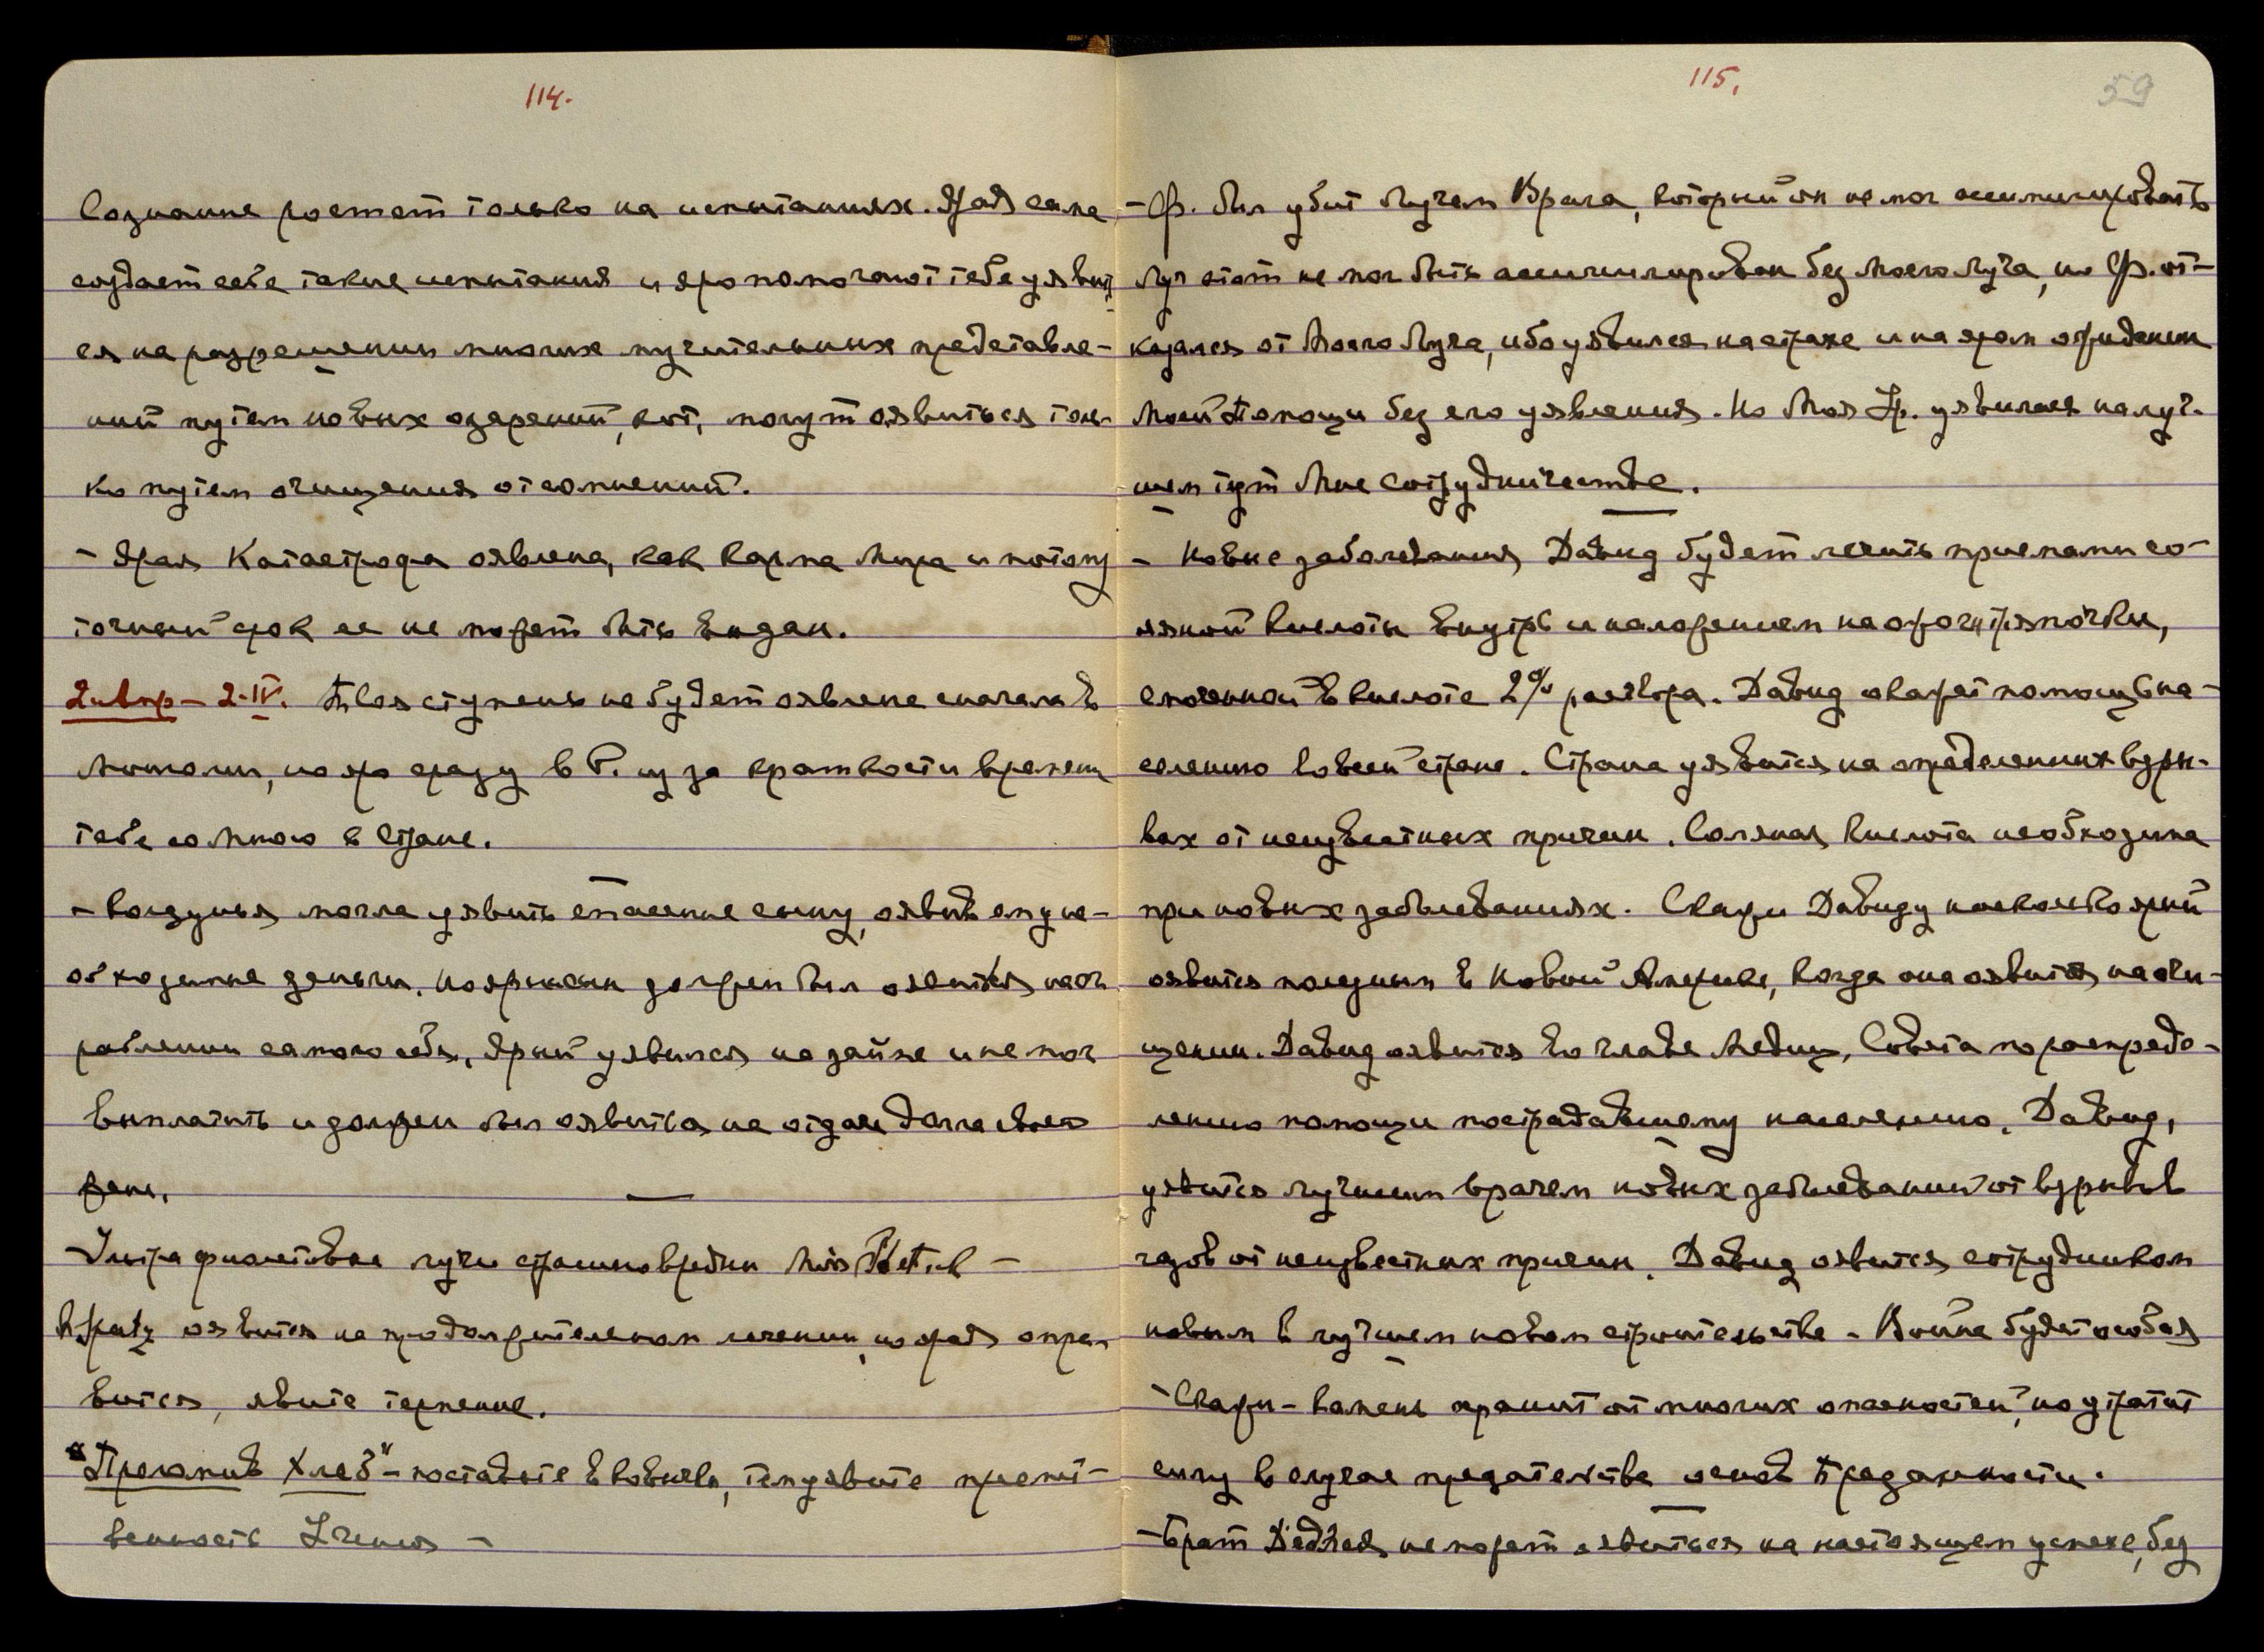 114.
Сознание ростет только на испытаниях. Ярая сама
создает себе такие испытания и яро помогают тебе уявит
ся на разрешении многих мучительных представле-
ний путем новых озарений, кот. могут оявиться толь-
ко путем очищения от сомнений.
- Ярая Катастрофа оявлена, как Карма Мира и потому
точный срок ее не может быть выдан.
2 Апр - 2-IV. Твоя ступень не будет оявлена сначала в
Монголии, но яро сразу в Р. из за краткости времени
тебе со Мною в Стране.
- могла уявить спасение сыну, оявив ему не-
обходимые деньги. Но яро сын должен был оявиться на ог-
раблении самого себя. Ярый уявился на займе и не мог
выплатить и должен был оявиться на отдаче долга своей
жене.
- Ультра фиолетовые лучи страшно вредны Mis
оявится на продолжительном лечении, но ярая опра-
вится, явите терпение.
"Преломив Хлеб" - поставьте в кавычки, тем уявите преемст-
венность Учения -
115.
59
- Ф. был убит Лучем Врага, который он не мог ассимилировать
Луч этот не мог быть ассимилирован без Моего Луча, но Ф. от-
казался от Моего Луча, ибо уявился на страхе и на яром ожидании
Моей Помощи без его уявления. Но Моя Ур. уявилась на луч-
шем тут Мне сотрудничестве.
- Новые заболевания Давид будет лечить приемами со-
ляной кислоты внутрь и наложением на ожоги тряпочки,
смоченной в кислоте 2% раствора. Давид окажет помощь на-
селению во всей стране. Страна уявится на определенных взры-
вах от неизвестных причин. Соляная кислота необходима
при новых заболеваниях. Скажи Давиду насколько ярый
оявится полезным в Новой Америке, когда она оявится на очи-
щении. Давид оявится во главе Медиц. Совета по распреде-
лению помощи пострадавшему населению. Давид,
уявится лучшим врачем новых заболеваний от взрывов
газов от неизвестных причин. Давид оявится сотрудником
новым в лучшем новом строительстве. Война будет особая
- Скажи - Камень хранит от многих опасностей, но утратит
силу в случае предательства основ Преданности.
- Брат не может оявиться на настоящем успехе, без